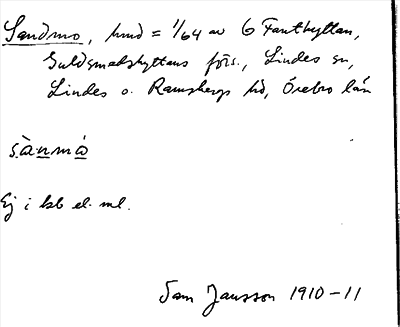 Sandmo, hmd = 1/64 av 6 Fanthyttan,
Guldsmedshyttans förs., Lindes sn,
Lindes o. Ramsbergs hd, Örebro län
sànmò
Ej i kb el. ml.
Sam Jansson 1910-11